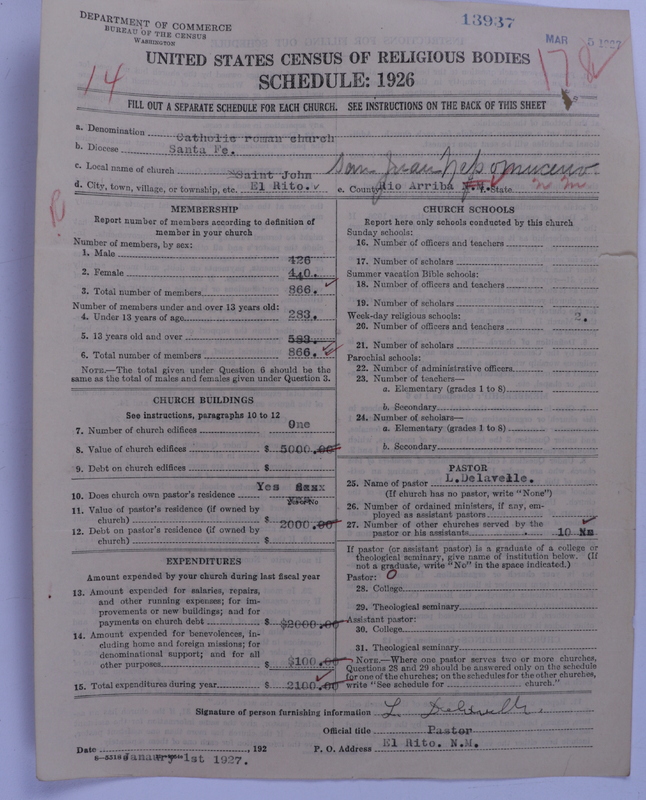 DEPARTMENT OF COMMERCE
BUREAU OF THE CENSUS
WASHINGTON
13937
MAR 5 1927
UNITED STATES CENSUS OF RELIGIOUS BODIES
SCHEDULE: 1926
14
178
FILL OUT A SEPARATE SCHEDULE FOR EACH CHURCH. SEE INSTRUCTIONS ON THE BACK OF THIS SHEET
a. Denomination Catholic roman church
b. Diocese Santa Fe.
c. Local name of church Saint John San Juan Nepomuceno
d. City, town, village, or township, etc. El Rito. e. County Rio Arriba N.M. f. State N M
MEMBERSHIP
Report number of members according to definition of
member in your church
Number of members, by sex:
1. Male 426
2. Female 440.
3. Total number of members 866.
Number of members under and over 13 years old:
4. Under 13 years of age 283.
5. 13 years old and over 583.
6. Total number of members 866.
NOTE.—The total given under Question 6 should be the
same as the total of males and females given under Question 3.
CHURCH BUILDINGS
See instructions, paragraphs 10 to 12
7. Number of church edifices One
8. Value of church edifices $ 5000.00
9. Debt on church edifices $
10. Does church own pastor's residence Yes
Yes or No
11. Value of pastor's residence (if owned by
church) $ 2000.00
12. Debt on pastor's residence (if owned by
church) $
EXPENDITURES
Amount expended by your church during last fiscal year
13. Amount expended for salaries, repairs,
and other running expenses; for im-
provements or new buildings; and for
payments on church debt $ $2000.00
14. Amount expended for benevolences, in-
cluding home and foreign missions; for
denominational support; and for all
other purposes $ $100.00
15. Total expenditures during year $ 2100.00
CHURCH SCHOOLS
Report here only schools conducted by this church
Sunday schools:
16. Number of officers and teachers
17. Number of scholars
Summer vacation Bible schools:
18. Number of officers and teachers
19. Number of scholars
Week-day religious schools: 2.
20. Number of officers and teachers
21. Number of scholars
Parochial schools:
22. Number of administrative officers
23. Number of teachers—
a. Elementary (grades 1 to 8)
b. Secondary
24. Number of scholars—
a. Elementary (grades 1 to 8)
b. Secondary
PASTOR
25. Name of pastor L.Delavelle.
(If church has no pastor, write "None")
26. Number of ordained ministers, if any, em-
ployed as assistant pastors
27. Number of other churches served by the
pastor or his assistants 10
If pastor (or assistant pastor) is a graduate of a college or
theological seminary, give name of institution below. (If
not a graduate, write "No" in the space indicated.)
Pastor: O
28. College
29. Theological seminary
Assistant pastor:
30. College
31. Theological seminary
NOTE.—Where one pastor serves two or more churches,
Questions 28 and 29 should be answered only on the schedule
for one of the churches; on the schedules for the other churches,
write "See schedule for church."
Signature of person furnishing information L. Delavelle.
Official title Pastor
Date , 192 P. O. Address El Rito. N.M.
8-5318 January 1st 1927.